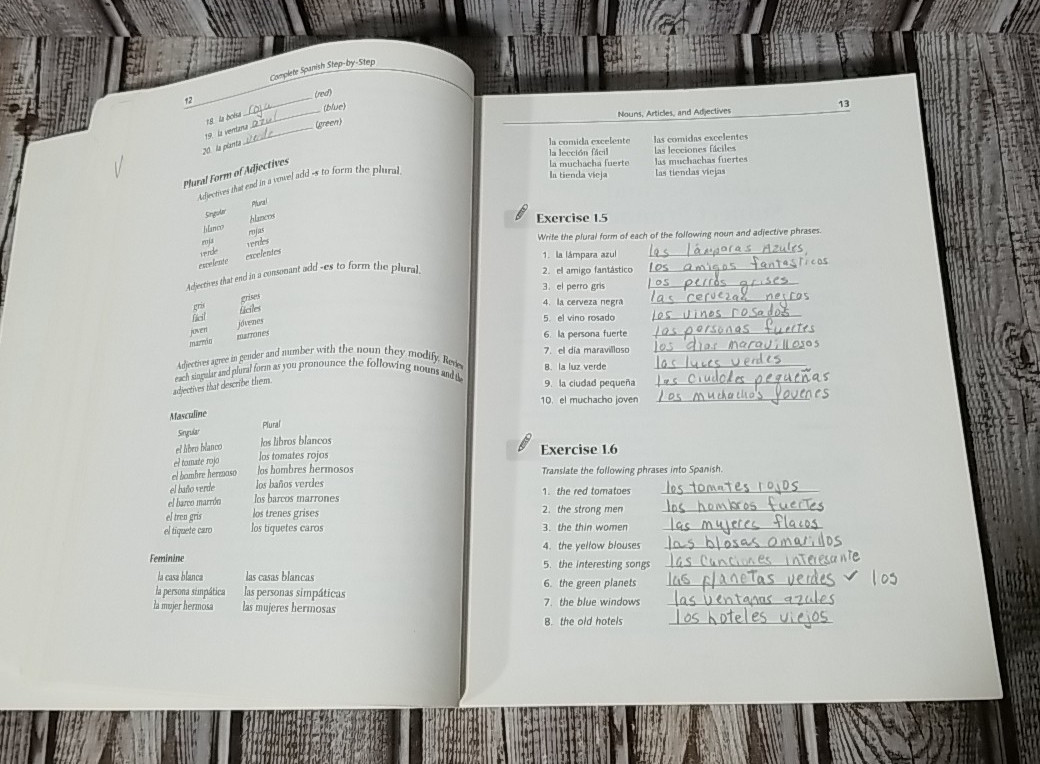 12
Complete Spanish Step-by-Step
18. la bolsa roja (red)
19. la ventana azul (blue)
20. la planta verde (green)
Plural Form of Adjectives
Adjectives that end in a vowel add -s to form the plural.
Singular Plural
blanco blancos
roja rojas
verde verdes
excelente excelentes
Adjectives that end in a consonant add -es to form the plural.
gris grises
fácil fáciles
joven jóvenes
marrón marrones
Adjectives agree in gender and number with the noun they modify. Review
each singular and plural form as you pronounce the following nouns and the
adjectives that describe them.
Masculine
Singular Plural
el libro blanco los libros blancos
el tomate rojo los tomates rojos
el hombre hermoso los hombres hermosos
el baño verde los baños verdes
el barco marrón los barcos marrones
el tren gris los trenes grises
el tiquete caro los tiquetes caros
Feminine
la casa blanca las casas blancas
la persona simpática las personas simpáticas
la mujer hermosa las mujeres hermosas
Nouns, Articles, and Adjectives 13
la comida excelente las comidas excelentes
la lección fácil las lecciones fáciles
la muchacha fuerte las muchachas fuertes
la tienda vieja las tiendas viejas
Exercise 1.5
Write the plural form of each of the following noun and adjective phrases.
1. la lámpara azul las lámparas Azules
2. el amigo fantástico los amigos fantasticos
3. el perro gris los perros grises
4. la cerveza negra las cervezas negros
5. el vino rosado los vinos rosados
6. la persona fuerte las personas fuertes
7. el día maravilloso los dias maravillosos
8. la luz verde las luces verdes
9. la ciudad pequeña las ciudades pequeñas
10. el muchacho joven los muchachos jovenes
Exercise 1.6
Translate the following phrases into Spanish.
1. the red tomatoes los tomates rojos
2. the strong men los hombros fuertes
3. the thin women las mujeres flacos
4. the yellow blouses las blosas amaridos
5. the interesting songs las canciones interesante
6. the green planets las planetas verdes ✓ los
7. the blue windows las ventanas azules
8. the old hotels los hoteles viejos